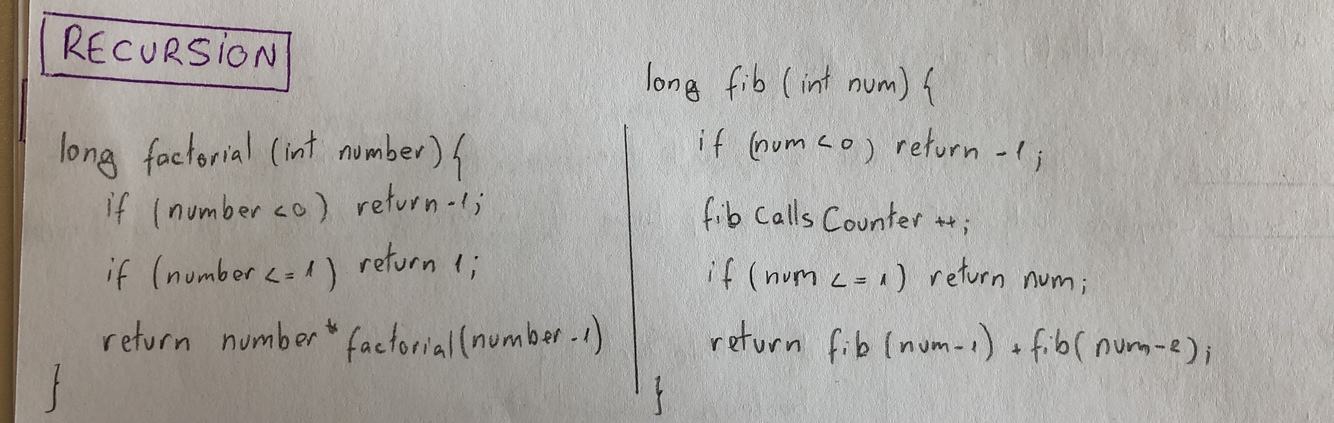 RECURSION
long factorial (int number) {
if (number <0) return -1;
if (number <= 1) return 1;
return number * factorial(number -1)
}
long fib (int num) {
if (num <0) return -1;
fib Calls Counter ++;
if (num <= 1) return num;
return fib (num-1) + fib(num-2);
}